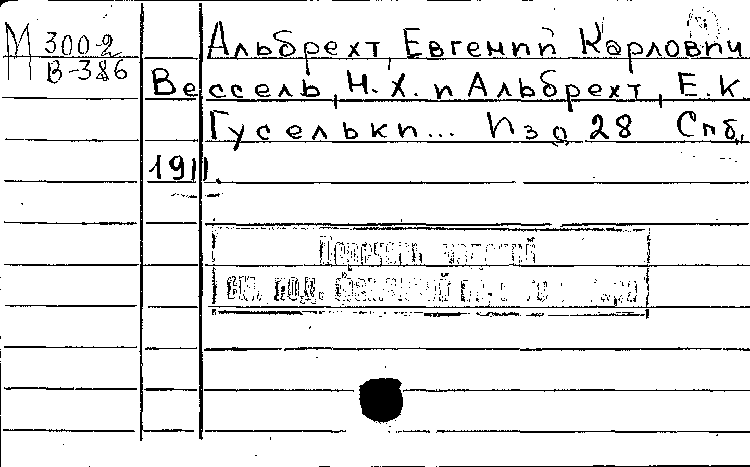 М 300-2
В-386
Альбрехт, Евгений Карлович
Вессель, Н.Х. и Альбрехт, Е.К.
Гусельки... Изд 28 Спб.,
1911.
Перечень изданий
см. под.